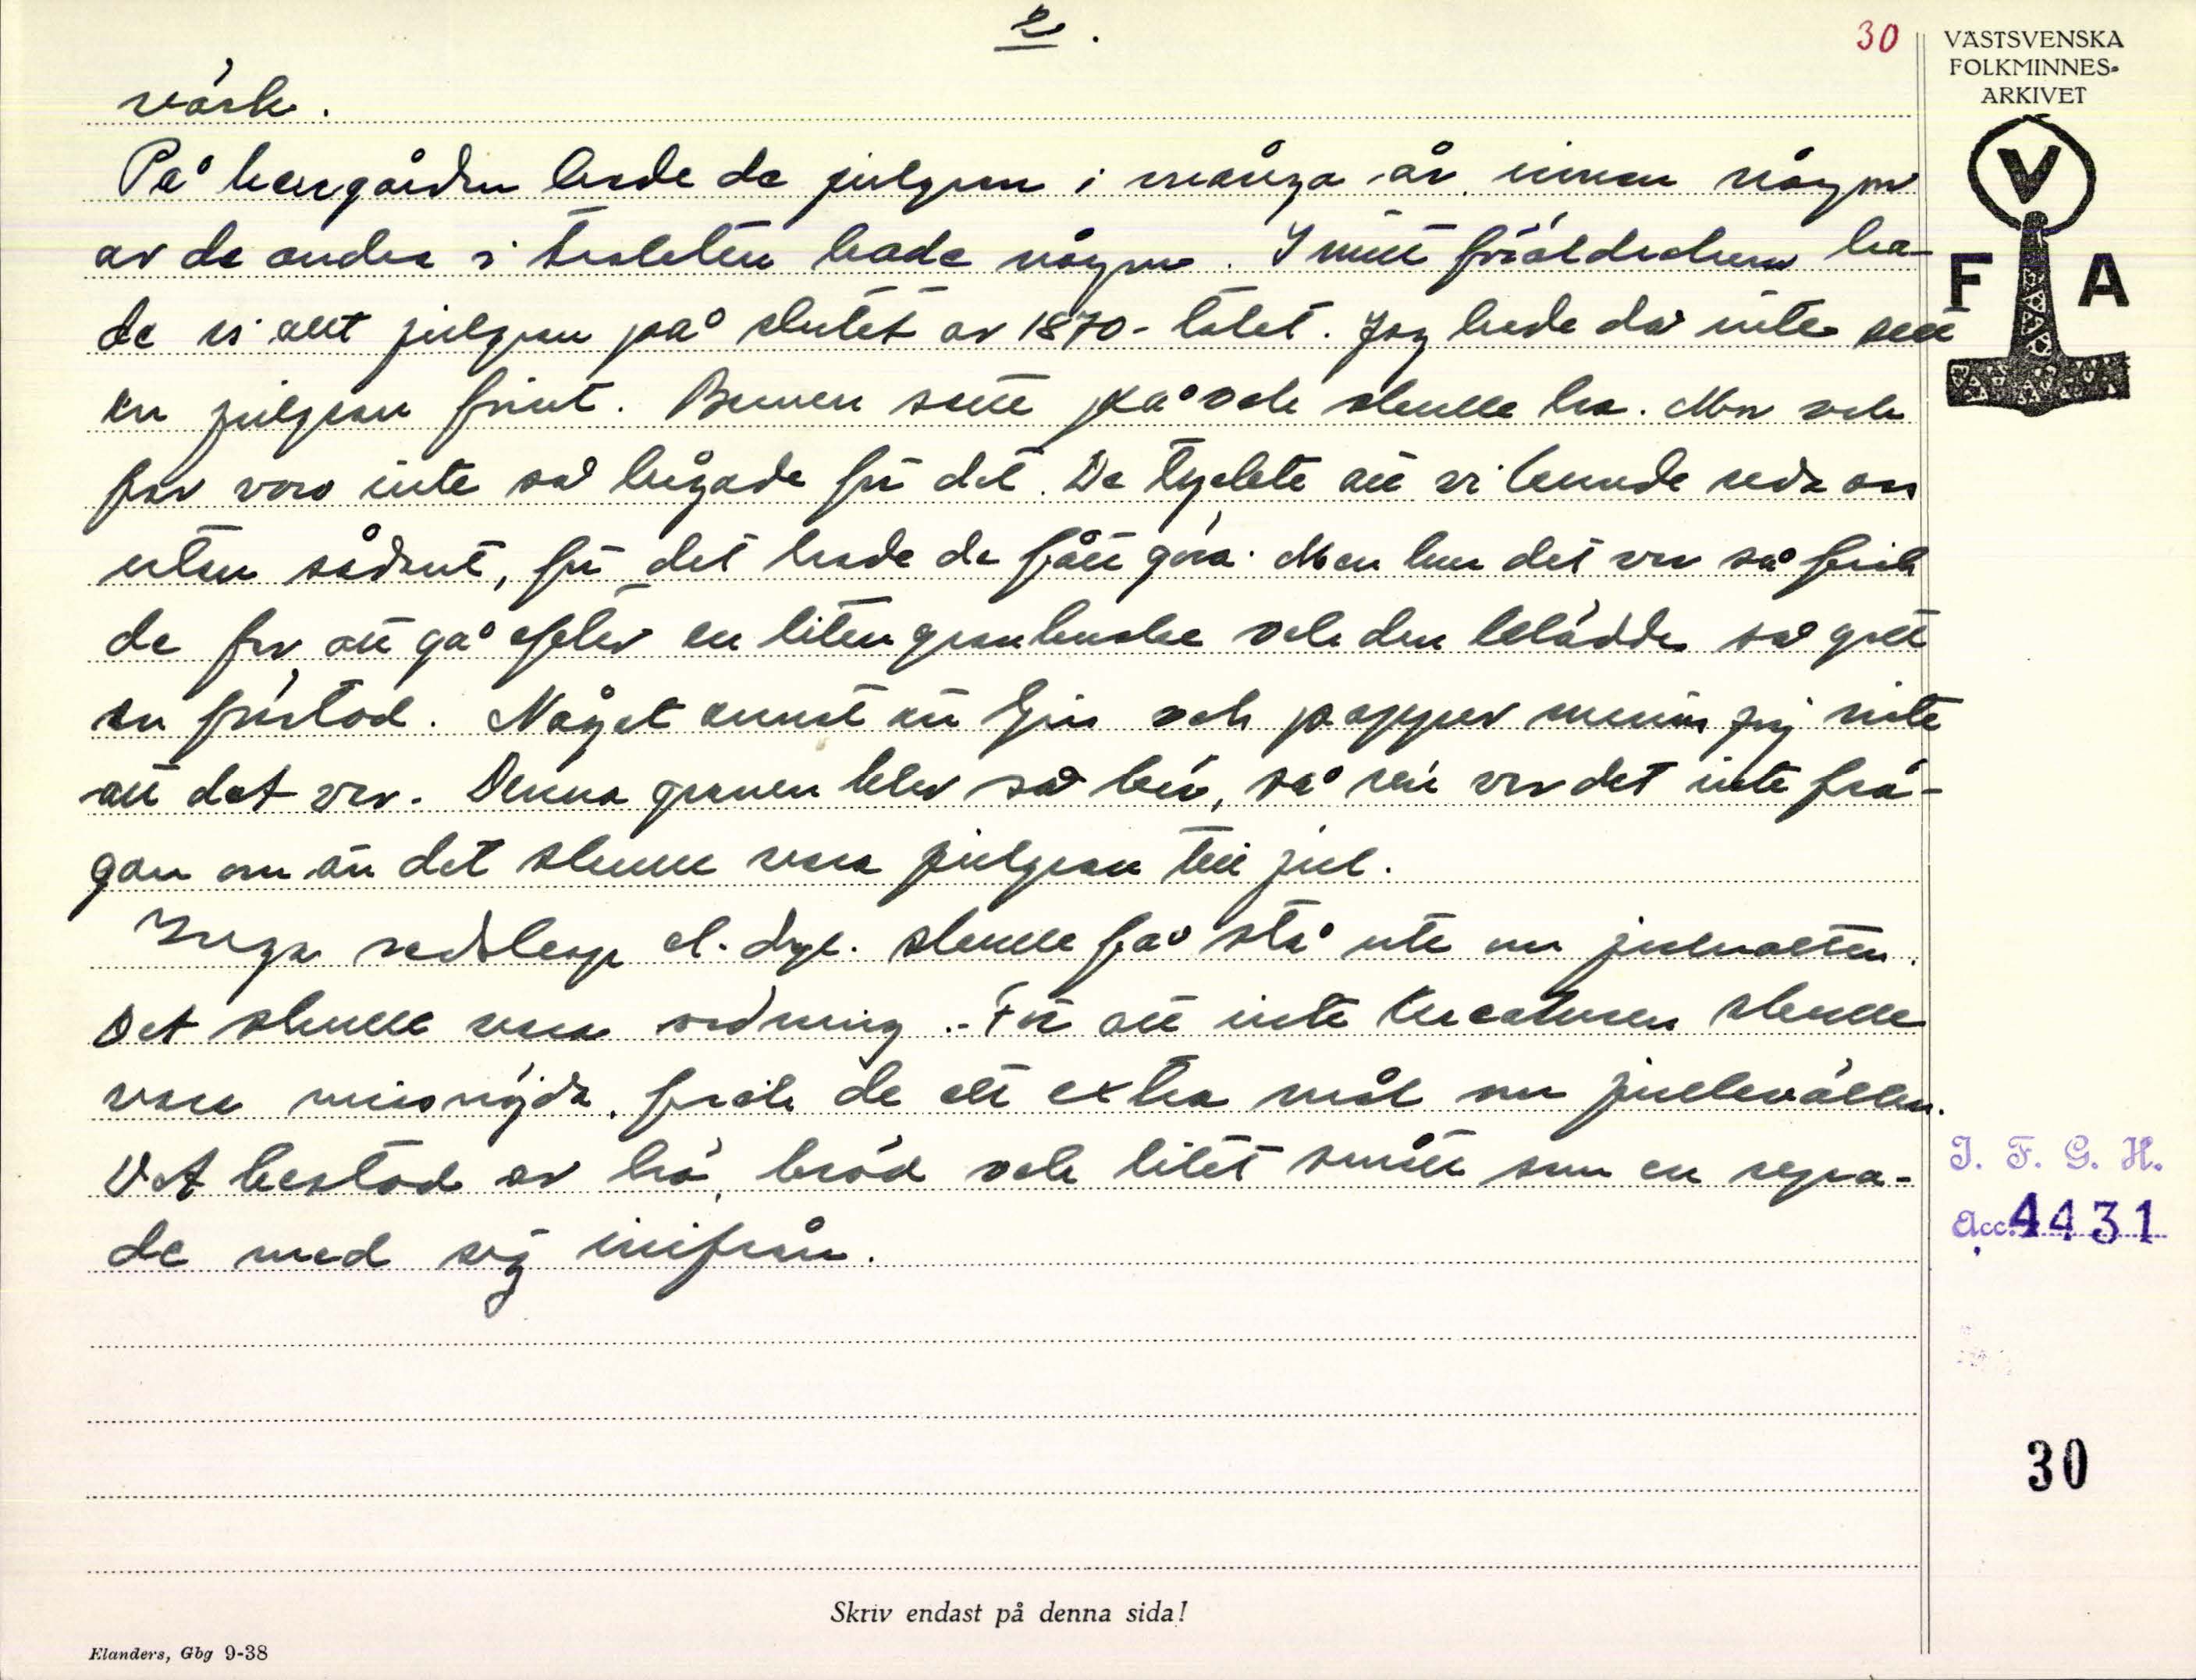 2.
30
VÄSTSVENSKA
FOLKMINNES-
ARKIVET
V
F A
värk.
På herrgården hade de julgran i många år innan någon
av de andra i trakten hade någon. I mitt föräldrahem ha-
de vi ett julgran på slutet av 1870-talet. Jag hade då inte sett
en julgran förut. Barnen satte på och skulle ha. Mor och
far voro inte så hågade för det. De tyckte att vi kunde reda oss
utan sådant, för det hade de fått göra. Men hur det var så fick
de far att gå efter en liten granbuske och den klädde så gott
en förstod. Något annat än ljus och papper minns jag inte
att det var. Denna granen blev så bra, så sen var det inte frå-
gan om än det skulle vara julgran till jul.
Inga redskap el. dyl. skulle få stå ute om julnatten.
Det skulle vara ordning. För att inte kreaturen skulle
vara missnöjda, fick de ett extra mål om julkvällen.
Det bestod av hö, bröd och litet smått som en sopa-
de med sig inifrån.
I. F. G. H.
Acc. 4431
30
Skriv endast på denna sida!
Elanders, Gbg 9-38